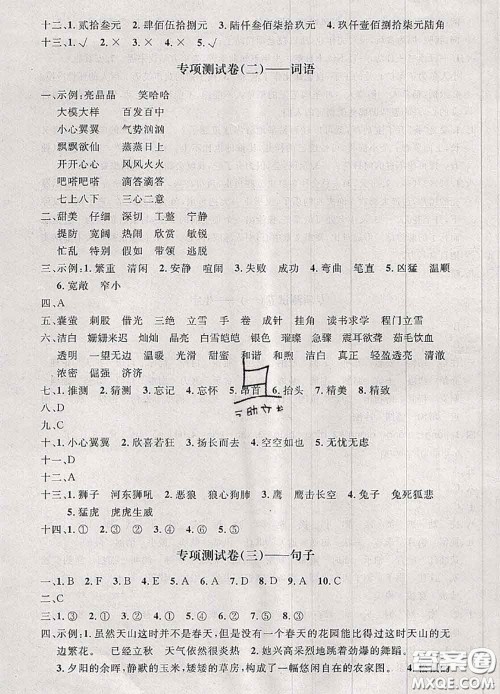 十二、1. 贰拾叁元　2. 肆佰伍拾元　3. 陆仟叁佰柒拾玖元　4. 玖仟壹佰捌拾柒元陆角
十三、1. √　2. ×　3. ×　4. ×　5. √
专项测试卷(二)——词语
一、示例:亮晶晶　笑哈哈
大模大样　百发百中
小心翼翼　气势汹汹
飘飘欲仙　蒸蒸日上
开开心心　风风火火
吧嗒吧嗒　滴答滴答
七上八下　三心二意
二、甜美　仔细　深切　工整　宁静
提防　宽阔　热闹　欣赏　敏锐
忙乱　特别　假如　带领　逃脱
三、示例:1. 繁重　清闲　2. 安静　喧闹　3. 失败　成功　4. 弯曲　笔直　5. 凶猛　温驯
6. 宽敞　窄小
四、A
五、囊萤　刺股　借光　三绝　立雪　手卷　成针　挂角　读书求学　程门立雪
六、洁白　姗姗来迟　灿灿　晶莹透亮　白雪皑皑　璀璨　晶亮　震耳欲聋　茹毛饮血
透明　一望无边　温暖　光滑　甜蜜　和谐　和煦　洁白　真正　轻盈透亮　清澈
浓密　倔强　济济
七、1. 推测　2. 猜测　3. 忘记　4. 忘怀　5. 昂首　6. 抬头　7. 精美　8. 精致
八、D
九、C
十、1. 小心翼翼　2. 欣喜若狂　3. 扬长而去　4. 空空如也　5. 无忧无虑
十一、D
十二、A
十三、1. 狮子　河东狮吼　2. 恶狼　狼心狗肺　3. 鹰　鹰击长空　4. 兔子　兔死狐悲
5. 猛虎　虎虎生威
十四、1. ①　2. ③　3. ②　4. ②　5. ①
专项测试卷(三)——句子
一、1. B　2. A　3. B　4. A　5. C　6. A　7. A　8. B　9. A　10. C
二、C
三、1. ③　2. ①　3. ②　4. ②　5. ③　6. ①
四、示例:1. 虽然天山这时并不是春天,但是有哪一个春天的花园能比得过这时天山的无
边繁花。　已经立秋　天气依然很炎热　2. 她兴高采烈地跳着优美的舞蹈。
3. 夕阳的余晖,静默的玉米,矮矮的草房,构成了一幅悠闲自在的农家图。　4.
MXQE.COM